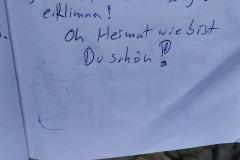 erklimma!
Oh Heimat wie bist
Du schön!